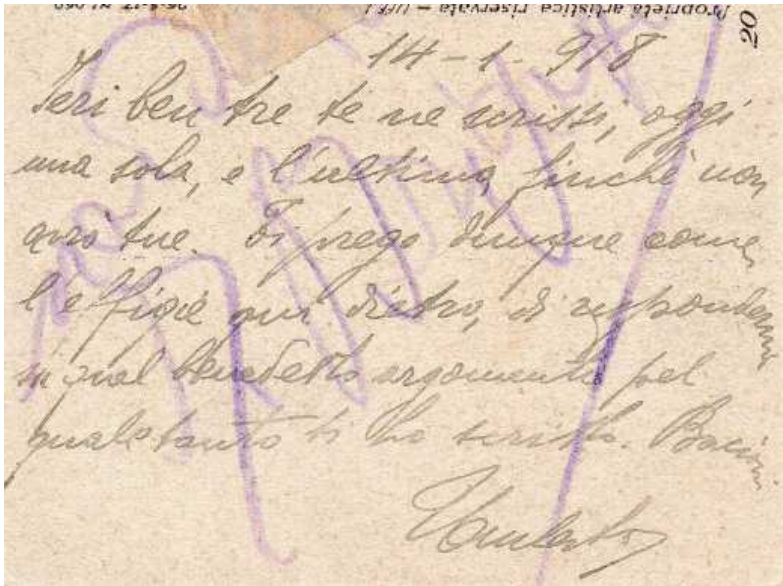 Proprietà artistica riservata – UFF.
20
14-1-918
Ieri ben tre te ne scrissi, oggi
una sola, e l'ultima, finchè non
avrò tue. Ti prego dunque come
l'effigie qui dietro, di rispondermi
in quel benedetto argomento pel
quale tanto ti ho scritto. Bacioni
Umberto